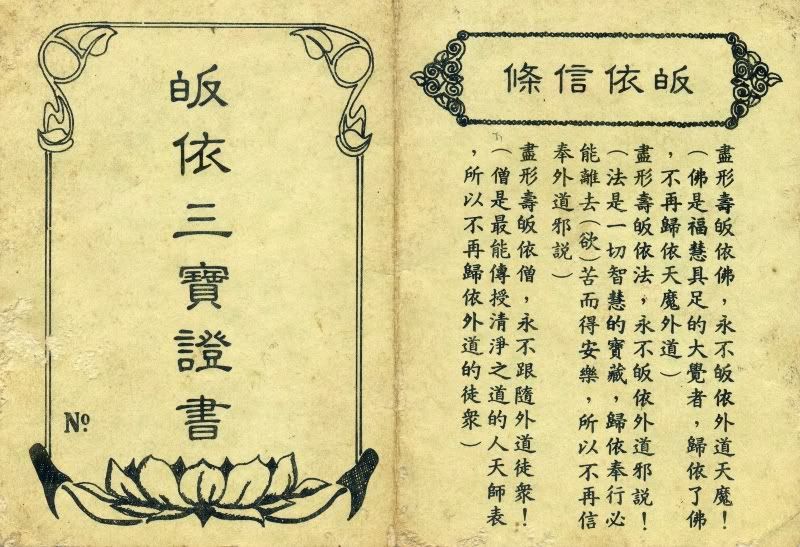 皈依三寶證書
Nº
皈依信條
盡形壽皈依佛，永不皈依外道天魔！
（佛是福慧具足的大覺者，歸依了佛
，不再歸依天魔外道）
盡形壽皈依法，永不皈依外道邪說！
（法是一切智慧的寶藏，歸依奉行必
能離去（欲）苦而得安樂，所以不再信
奉外道邪說）
盡形壽皈依僧，永不跟隨外道徒衆！
（僧是最能傳授清淨之道的人天師表
，所以不再歸依外道的徒衆）